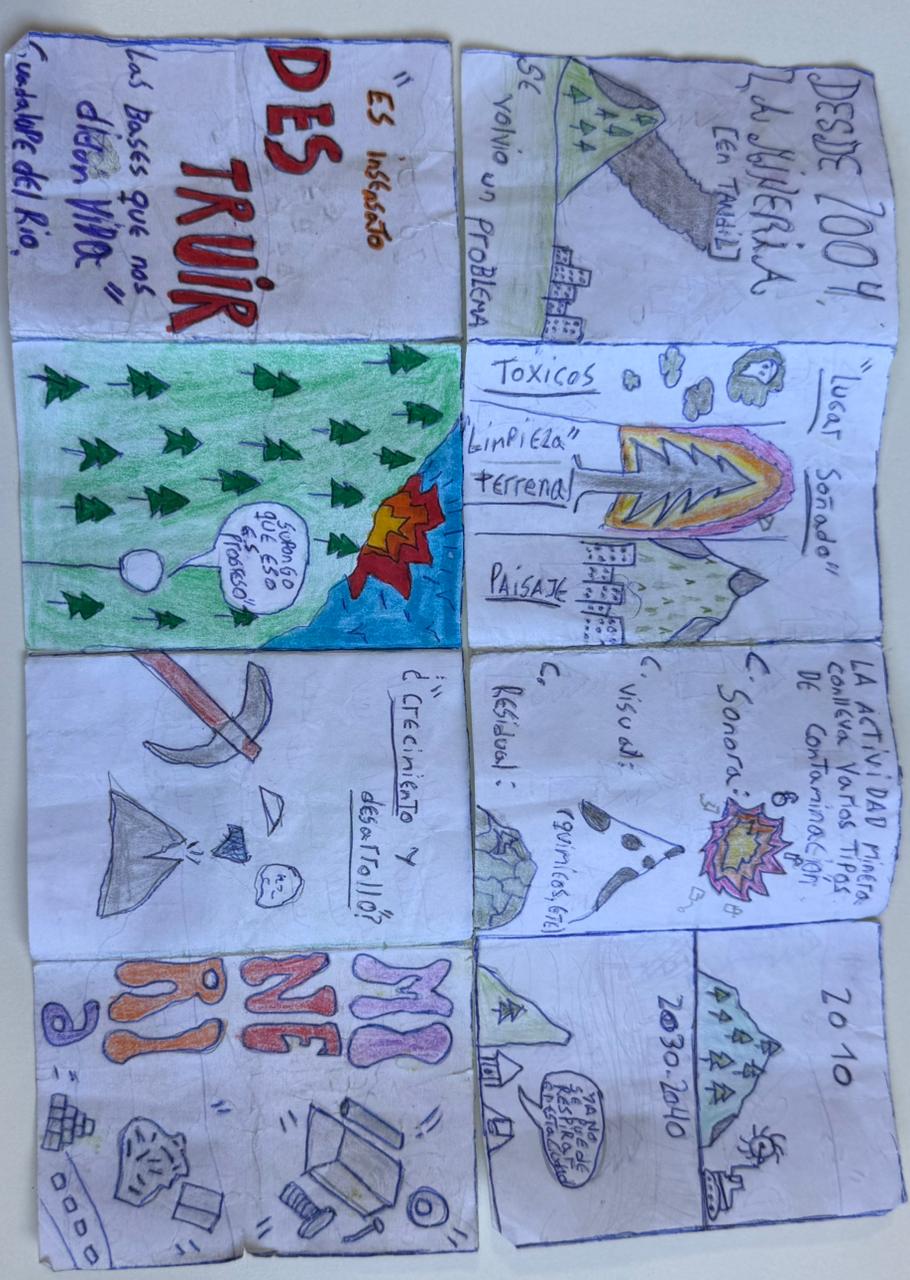 DESDE 2004,
LA MINERIA
[EN TANDIL]
SE VOLVIO UN PROBLEMA
"LUGAR SOÑADO"
TOXICOS
"LIMPIEZA"
terrenal
PAISAJE
LA ACTIVIDAD minera
conlleva varios tipos
DE contaminacion.
C. Sonora:
C. visual:
C. Residual:
(quimicos, etc)
2010
2030-2040
YA NO
SE PUEDE
RESPIRAR
EN ESTA CIUDAD
"ES INSENSATO
DES
TRUIR
LAS BASES QUE NOS
dieron VIDA"
Guadalupe del Rio.
SUPONGO
QUE ESO
ES
PROGRESO"
¿"CRECIMIENTO Y
desarrollo"?
MI
NE
RI
a